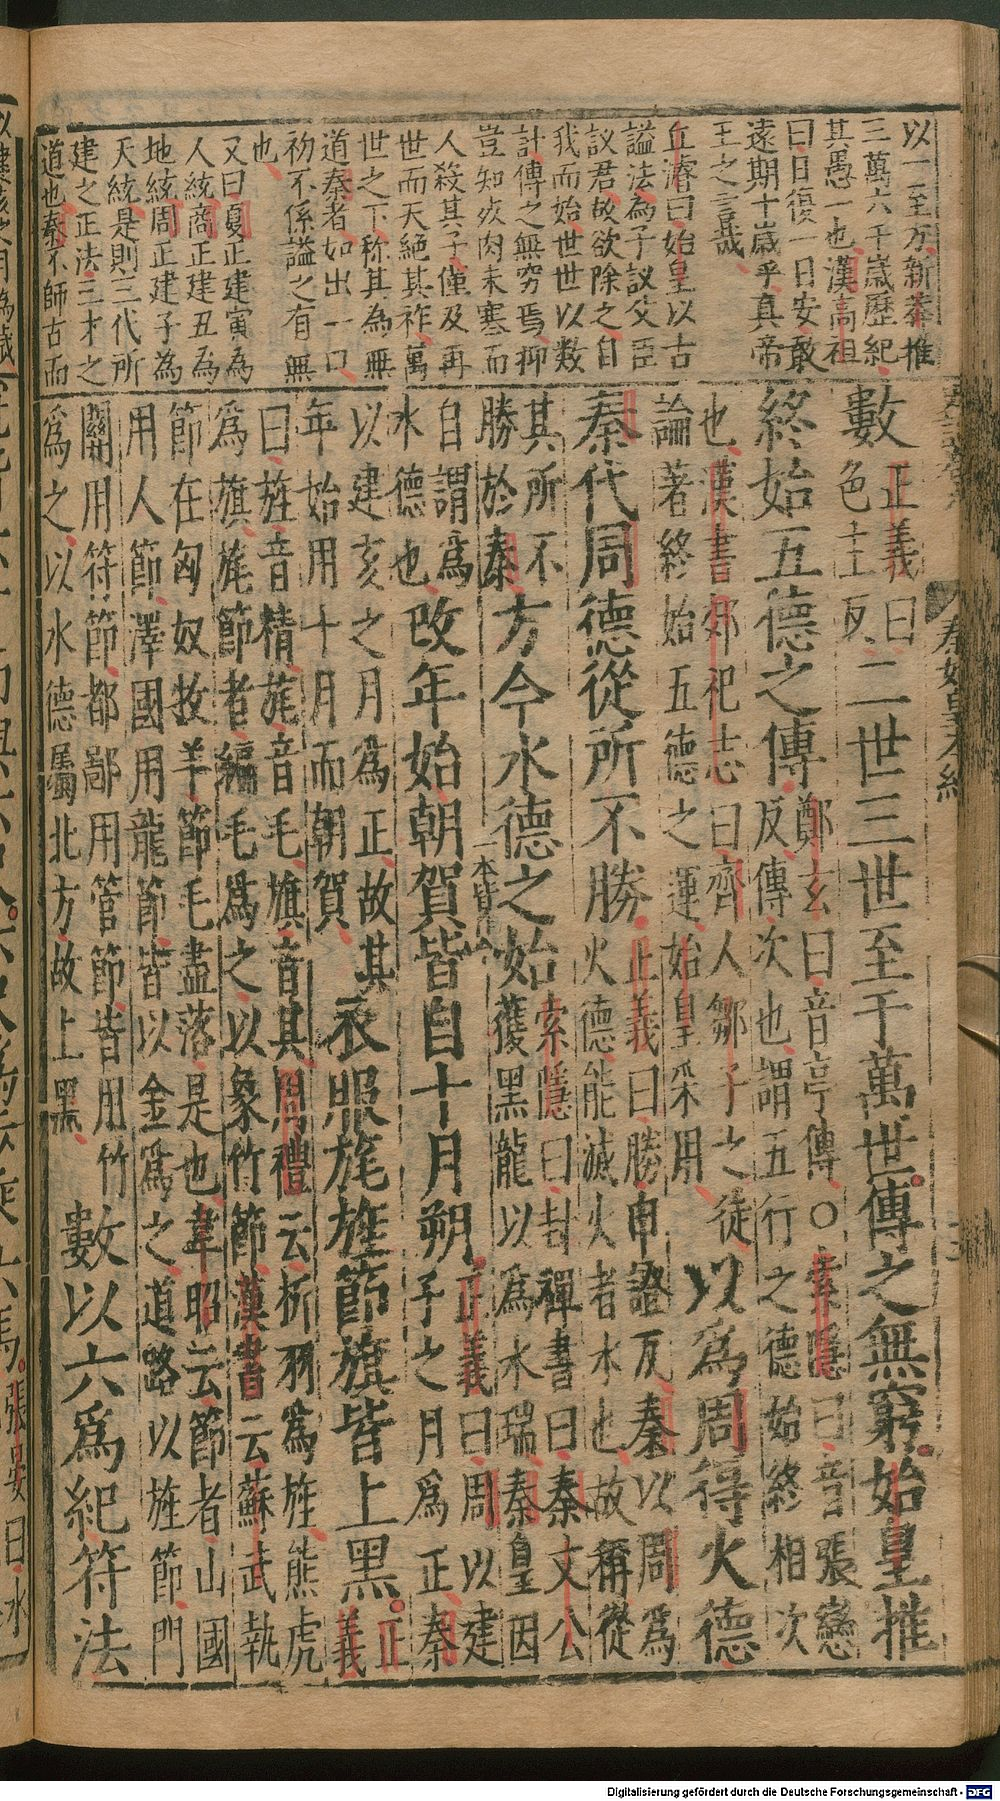 以一二至万新莽推
三萬六千歲歷紀
其愚一也漢高祖
曰日復一日安敢
遠期十歲乎真帝
王之言哉
丘濬曰始皇以古
謚法為子議父臣
議君故欲除之自
我而始世世以数
計傳之無窮焉抑
豈知疢肉未塞而
人殺其子僅及再
世而天絕其祚萬
世之下称其為無
道秦者如出一口
初不係謚之有無
也
又曰夏正建寅為
人統商正建丑為
地統周正建子為
天統是則三代所
建之正法三才之
道也秦不師古而
秦始皇本紀
數正義曰色主反二世三世至于萬世傳之無窮始皇推
終始五德之傳鄭玄曰音亭傳○索隱曰音張戀反傳次也謂五行之德始終相次
也漢書郊祀志曰齊人鄒子之徒論著終始五德之運始皇采用以爲周得火德
秦代周德從所不勝正義曰勝申證反秦以周爲火德能滅火者水也故稱從
其所不勝於秦方今水德之始索隱曰封禪書曰秦文公獲黑龍以爲水瑞秦皇因
自謂爲水德也改年始朝賀皆自十月朔正義曰周以建子之月爲正秦
以建亥之月爲正故其年始用十月而朝賀衣服旄旌節旗皆上黑正義
曰旌音精旄音毛旗音其周禮云析羽爲旌熊虎爲旗旄節者編毛爲之以象竹節漢書云蘇武執
節在匈奴牧羊節毛盡落是也韋昭云節者山國用人節澤國用龍節皆以金爲之道路以旌節門
關用符節都鄙用管節皆用竹爲之以水德屬北方故上黑數以六爲紀符法
張晏曰水
Digitalisierung gefördert durch die Deutsche Forschungsgemeinschaft - DFG